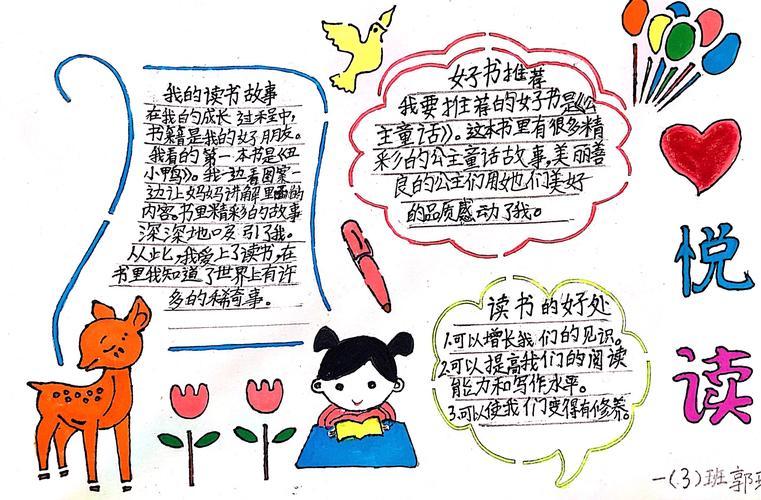 我的读书故事
在我的成长过程中,
书籍是我的好朋友。
我看的第一本书是《丑
小鸭》。我一边看图案一
边让妈妈讲解里面的
内容。书里精彩的故事
深深地吸引了我。
从此,我爱上了读书,在
书里我知道了世界上有许
多的稀奇事。
好书推荐
我要推荐的好书是《公
主童话》。这本书里有很多精
彩的公主童话故事,美丽善
良的公主们用她们美好
的品质感动了我。
读书的好处
1.可以增长我们的见识。
2.可以提高我们的阅读
能力和写作水平。
3.可以使我们变得有修养。
悦
读
一(3)班郭